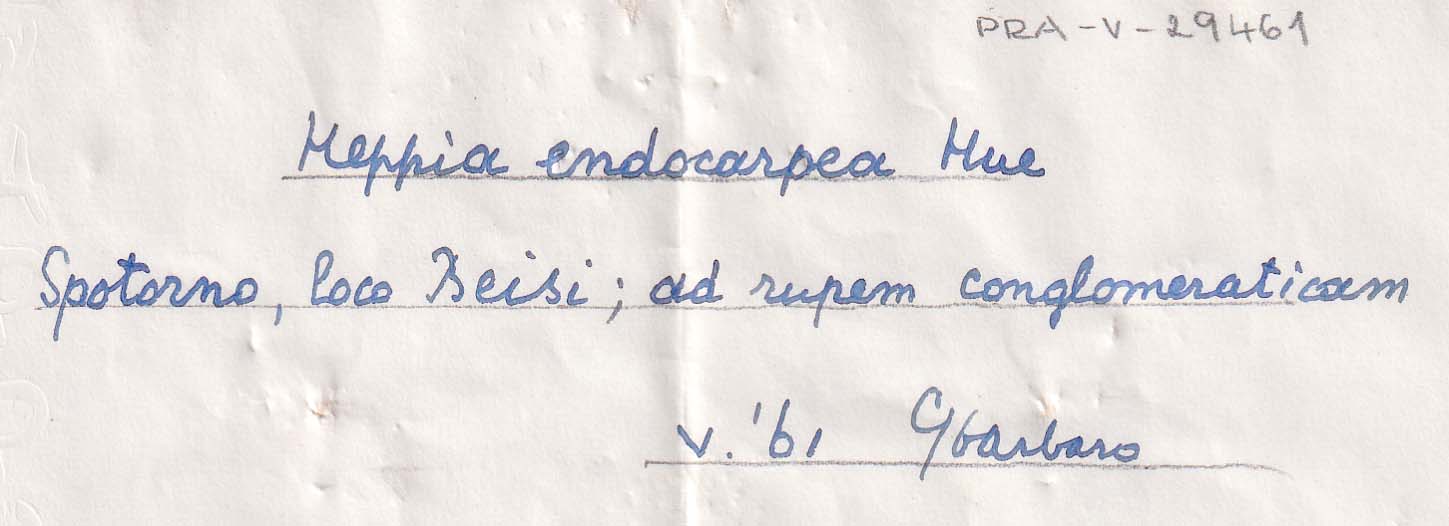 PRA-V-29461
Heppia endocarpea Hue
Spotorno, loco Beisi; ad rupem conglomeraticam
V. '61 Gbarbaro